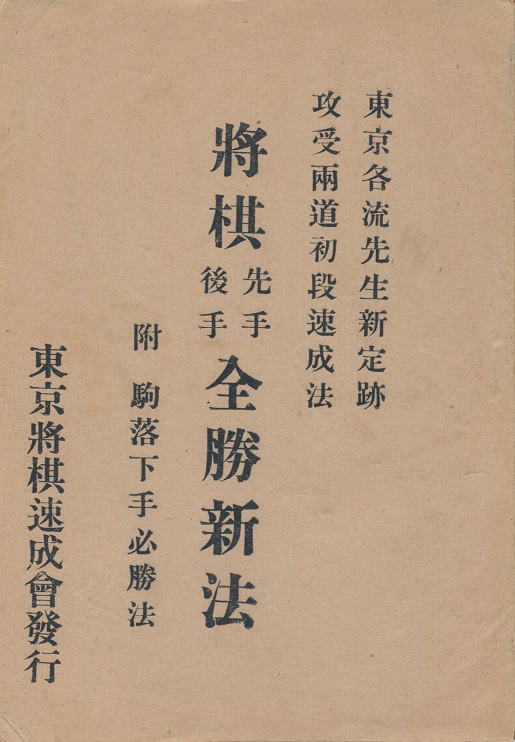 東京各流先生新定跡
攻受兩道初段速成法
將棋先手後手全勝新法
附 駒落下手必勝法
東京將棋速成會發行